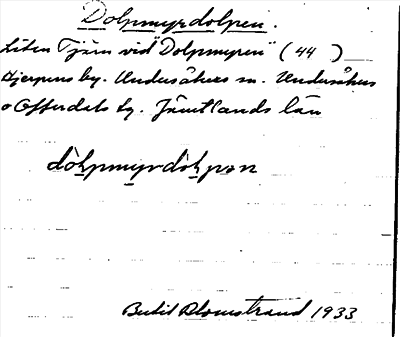 Dolpmyrdolpen.
Liten Tjärn vid "Dolpmyren" (44)
Hjerpens by. Undersåkers sn. Undersåkers
o Offerdals tg. Jämtlands län
dòḷpmyrdòḷpən
Budit Blomstrand 1933